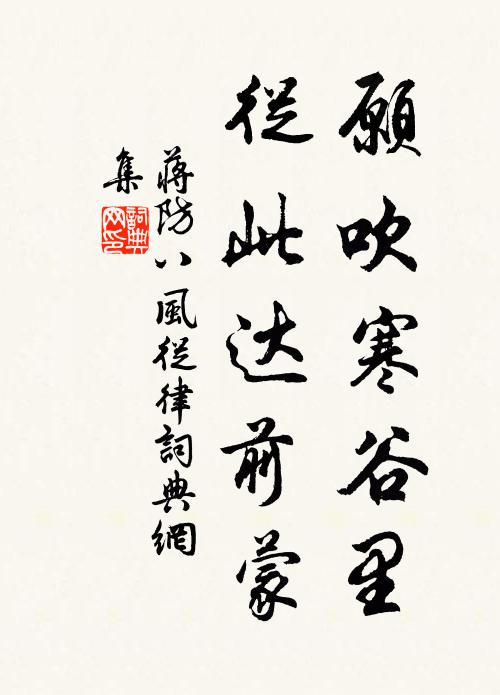 願吹寒谷里
從此达前蒙
蔣防八風從律詞典網
集
詞典
网印